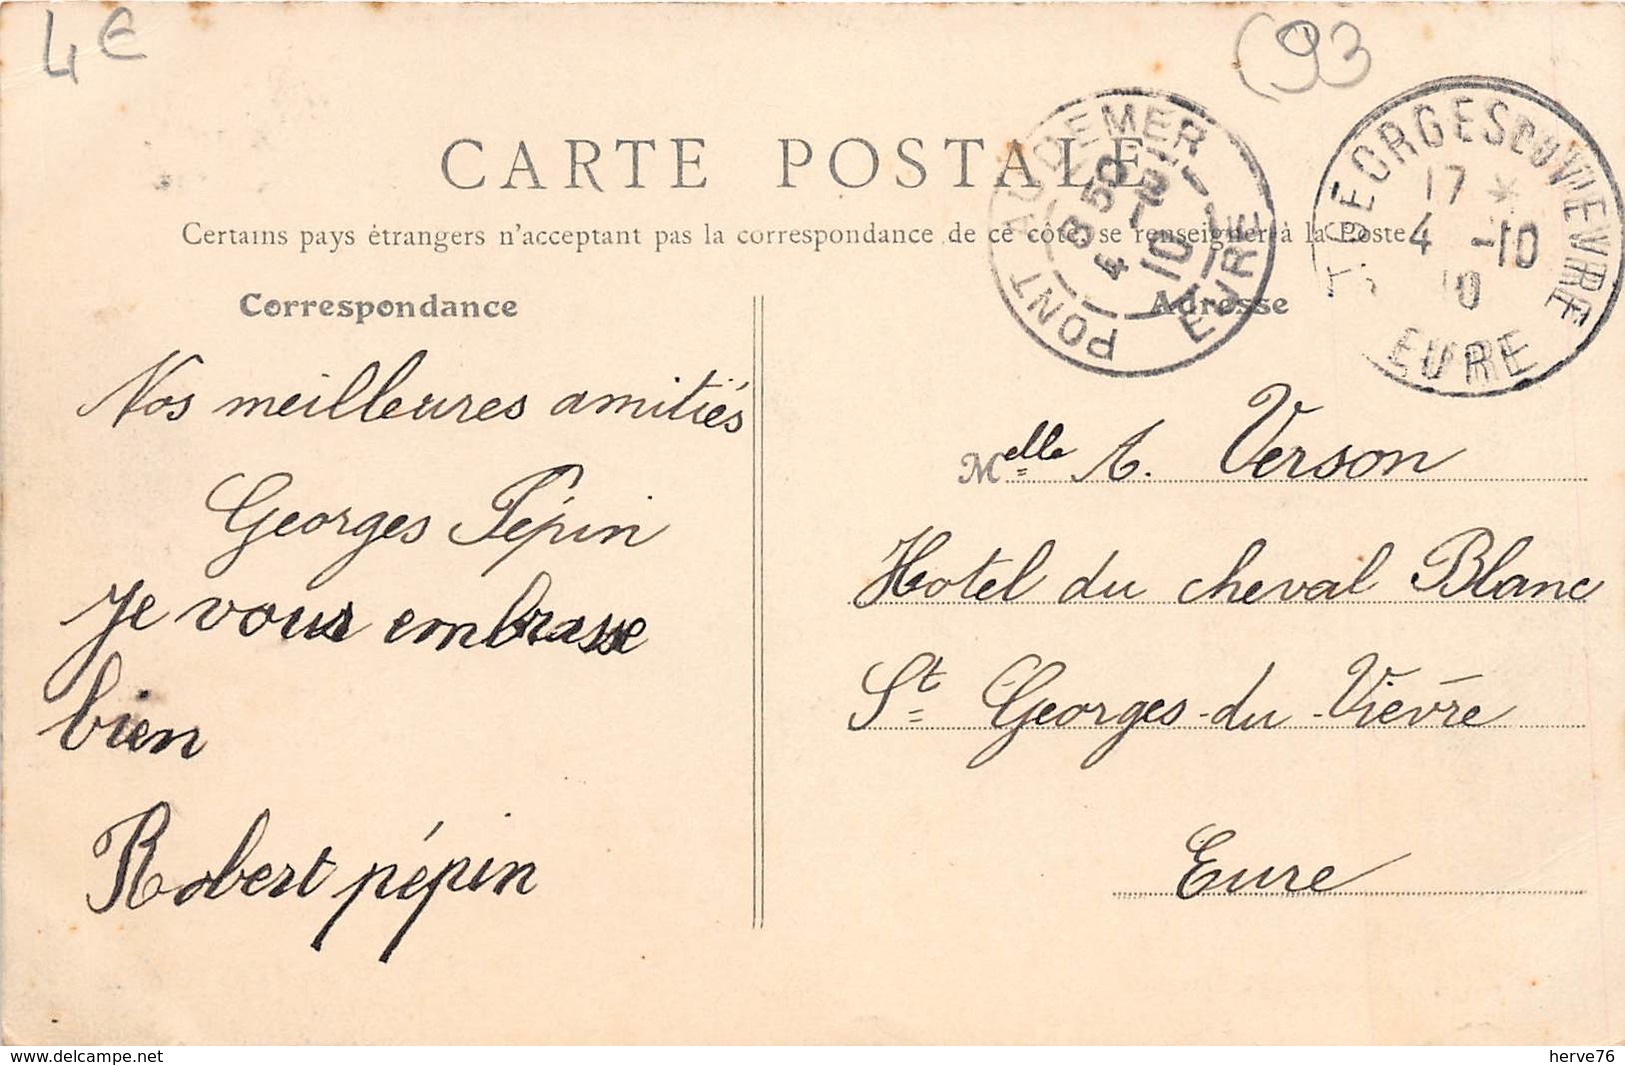 4€
(93
CARTE POSTALE
Certains pays étrangers n'acceptent pas la correspondance de ce côté, se renseigner à la Poste
PONT AUDEMER
EURE
ST GEORGES DU VIEVRE
17 *
4 -10
10
EURE
Correspondance
Adresse
Nos meilleures amitiés
Georges Pépin
Je vous embrasse
bien
Robert pépin
Melle A. Verson
Hotel du cheval Blanc
St Georges-du-Vièvre
Eure
www.delcampe.net
herve76